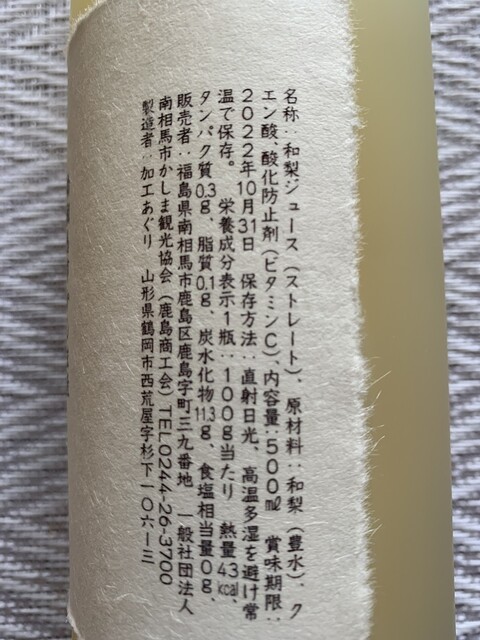 名称：和梨ジュース（ストレート）、原材料：和梨（豊水）、ク
エン酸、酸化防止剤（ビタミンC）、内容量：500㎖　賞味期限：
2022年10月31日　保存方法：直射日光、高温多湿を避け常
温で保存。　栄養成分表示1瓶：100g当たり　熱量43kcal、
タンパク質0.3g、脂質0.1g、炭水化物11.3g、食塩相当量0g、
販売者：福島県南相馬市鹿島区鹿島字町三九番地　一般社団法人
南相馬市かしま観光協会（鹿島商工会）TEL0244-26-3700
製造者：加工あぐり　山形県鶴岡市西荒屋字杉下一〇六ー三